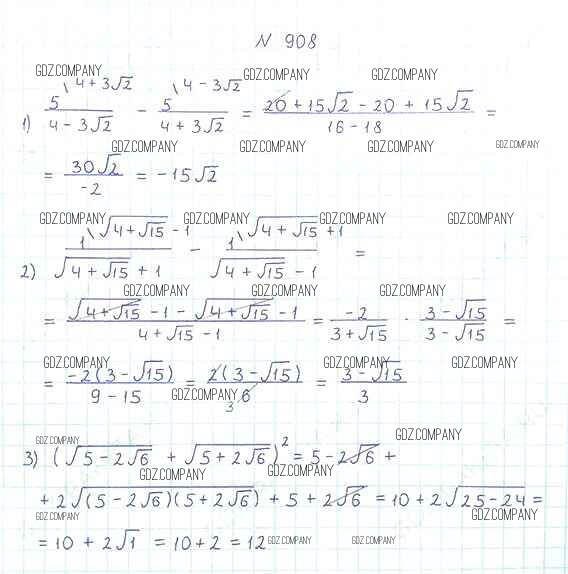 N 908
GDZ.COMPANY GDZ.COMPANY GDZ.COMPANY
1) 5\4+3√2 / (4-3√2) - 5\4-3√2 / (4+3√2) = (20+15√2-20+15√2) / (16-18) =
GDZ.COMPANY GDZ.COMPANY GDZ.COMPANY GDZ.COMPANY
= 30√2 / -2 = -15√2
GDZ.COMPANY GDZ.COMPANY GDZ.COMPANY GDZ.COMPANY
2) 1\√(4+√15) -1 / (√(4+√15) +1) - 1\√(4+√15) +1 / (√(4+√15) -1) =
GDZ.COMPANY GDZ.COMPANY GDZ.COMPANY
= (√(4+√15) -1 - √(4+√15) -1) / (4+√15 -1) = -2 / (3+√15) · (3-√15) / (3-√15) =
GDZ.COMPANY GDZ.COMPANY GDZ.COMPANY
= -2(3-√15) / (9-15) = 2(3-√15) / 6 3 = (3-√15) / 3
GDZ.COMPANY
GDZ.COMPANY GDZ.COMPANY
3) (√(5-2√6) + √(5+2√6))² = 5-2√6 +
GDZ.COMPANY GDZ.COMPANY
+ 2√((5-2√6)(5+2√6)) + 5+2√6 = 10+2√(25-24) =
GDZ.COMPANY GDZ.COMPANY
= 10 + 2√1 = 10+2 = 12 GDZ.COMPANY GDZ.COMPANY